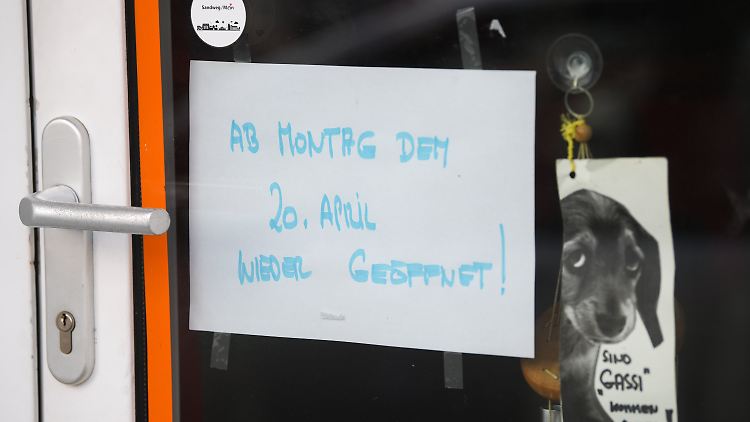 Sandweg/Main
AB MONTAG DEM
20. APRIL
WIEDER GEÖFFNET!
SIND
"GASSI"
KOMMEN